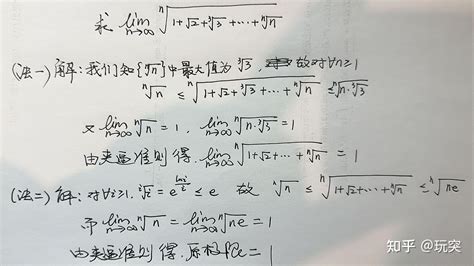 求 lim_{n→∞} ⁿ√(1+√2+³√3+…+ⁿ√n)
(法一)解:我们知{ⁿ√n}中最大值为³√3, 故对∀n≥1
ⁿ√n ≤ ⁿ√(1+√2+³√3+…+ⁿ√n) ≤ ⁿ√(n·³√3)
又 lim_{n→∞} ⁿ√n = 1, lim_{n→∞} ⁿ√(n·³√3) = 1
由夹逼准则得, lim_{n→∞} ⁿ√(1+√2+³√3+…+ⁿ√n) = 1
(法二)解:对∀i≥1, ⁱ√i = e^{lni/i} ≤ e 故 ⁿ√n ≤ ⁿ√(1+√2+…+ⁿ√n) ≤ ⁿ√(ne)
而 lim_{n→∞} ⁿ√n = lim_{n→∞} ⁿ√(ne) = 1
由夹逼准则得, 原极限 = 1
知乎 @玩突